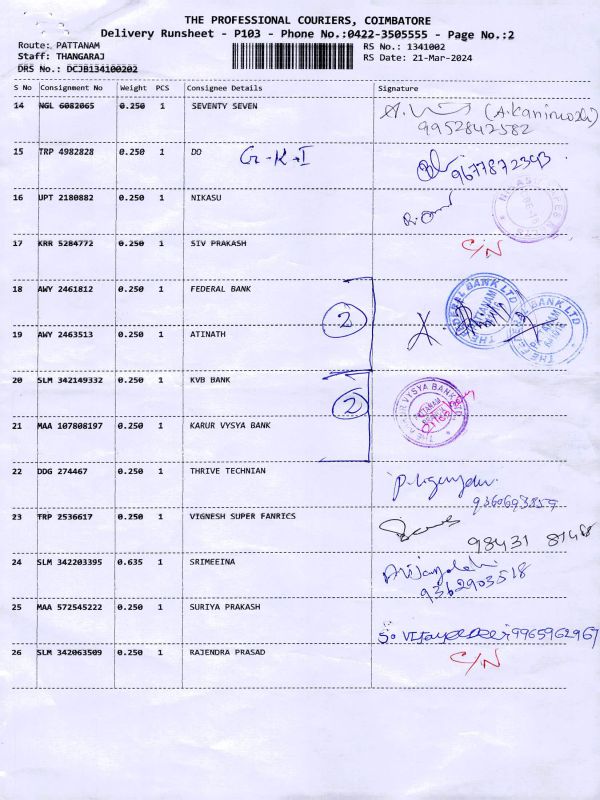 THE PROFESSIONAL COURIERS, COIMBATORE
Delivery Runsheet - P103 - Phone No.:0422-3505555 - Page No.:2
Route: PATTANAM
RS No.: 1341002
Staff: THANGARAJ
RS Date: 21-Mar-2024
DRS No.: DCJB134100202
S No Consignment No Weight PCS Consignee Details Signature
14 NGL 6082065 0.250 1 SEVENTY SEVEN
9952842582
15 TRP 4982828 0.250 1 DO G-K-I 9677872393
16 UPT 2180882 0.250 1 NIKASU
17 KRR 5284772 0.250 1 SIV PRAKASH C/N
18 AWY 2461812 0.250 1 FEDERAL BANK
2
THE FEDERAL BANK LTD PATTANAM
THE FEDERAL BANK LTD
19 AWY 2463513 0.250 1 ATINATH
20 SLM 342149332 0.250 1 KVB BANK
2
21 MAA 107808197 0.250 1 KARUR VYSYA BANK
22 DDG 274467 0.250 1 THRIVE TECHNIAN
9360693859
23 TRP 2536617 0.250 1 VIGNESH SUPER FANRICS
98431 87148
24 SLM 342203395 0.635 1 SRIMEEINA
9362903518
25 MAA 572545222 0.250 1 SURIYA PRAKASH
9965962967
26 SLM 342063509 0.250 1 RAJENDRA PRASAD C/N